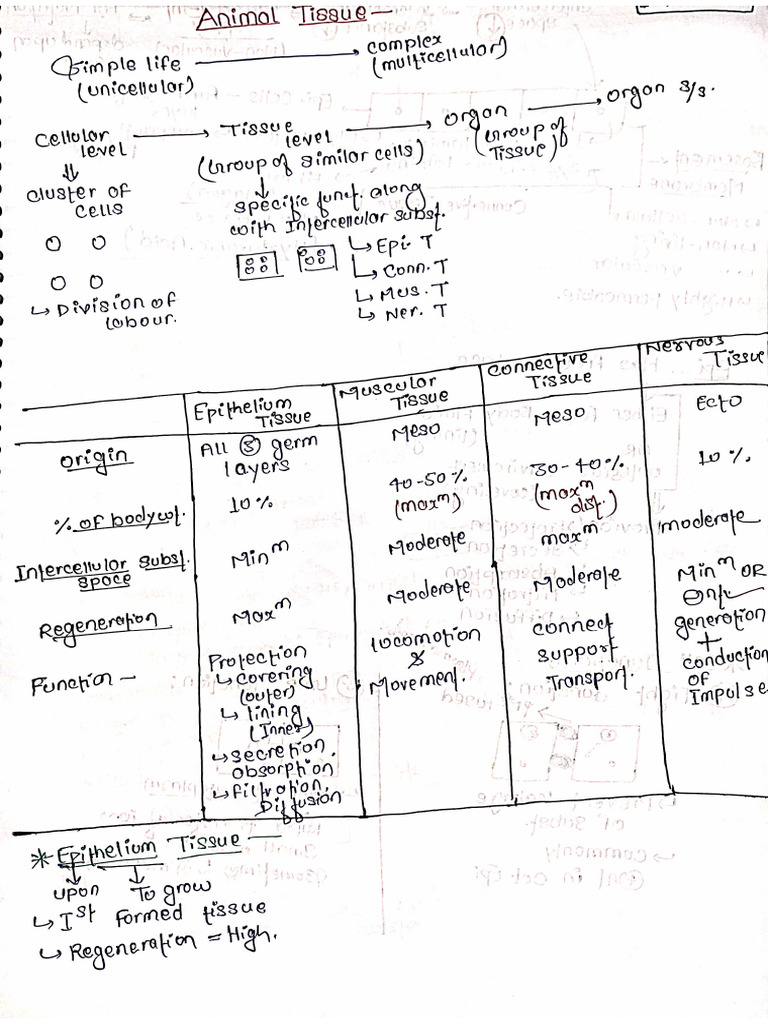 Animal Tissue —
Simple life → complex
(unicellular) (multicellular)
Cellular level → Tissue level → organ → organ s/s.
(Group of similar cells) (Group of Tissue)
⇓
cluster of
cells
↳ Division of
labour.
↓
specific funct. along
with Intercellular subst.
↳ Epi. T
↳ Conn. T
↳ Mus. T
↳ Ner. T
Epithelium Tissue | Muscular Tissue | Connective Tissue | Nervous Tissue
Origin | All ③ germ layers | Meso | Meso | Ecto
% of body wt. | 10% | 40-50% (maxᵐ) | 30-40% (maxᵐ dist.) | 10%
Intercellular subst. space | Minᵐ | Moderate | maxᵐ | moderate
Regeneration | Maxᵐ | Moderate | Moderate | Minᵐ OR
Function — | Protection | locomotion & Movement. | connect support Transport. | generation + conduction of Impulse
↳ covering
(outer)
↳ lining
(Inner)
↳ secretion.
absorption
↳ filtration.
Diffusion
* Epithelium Tissue —
↓ ↓
upon To grow
↳ Iˢᵗ formed tissue
↳ Regeneration = High.